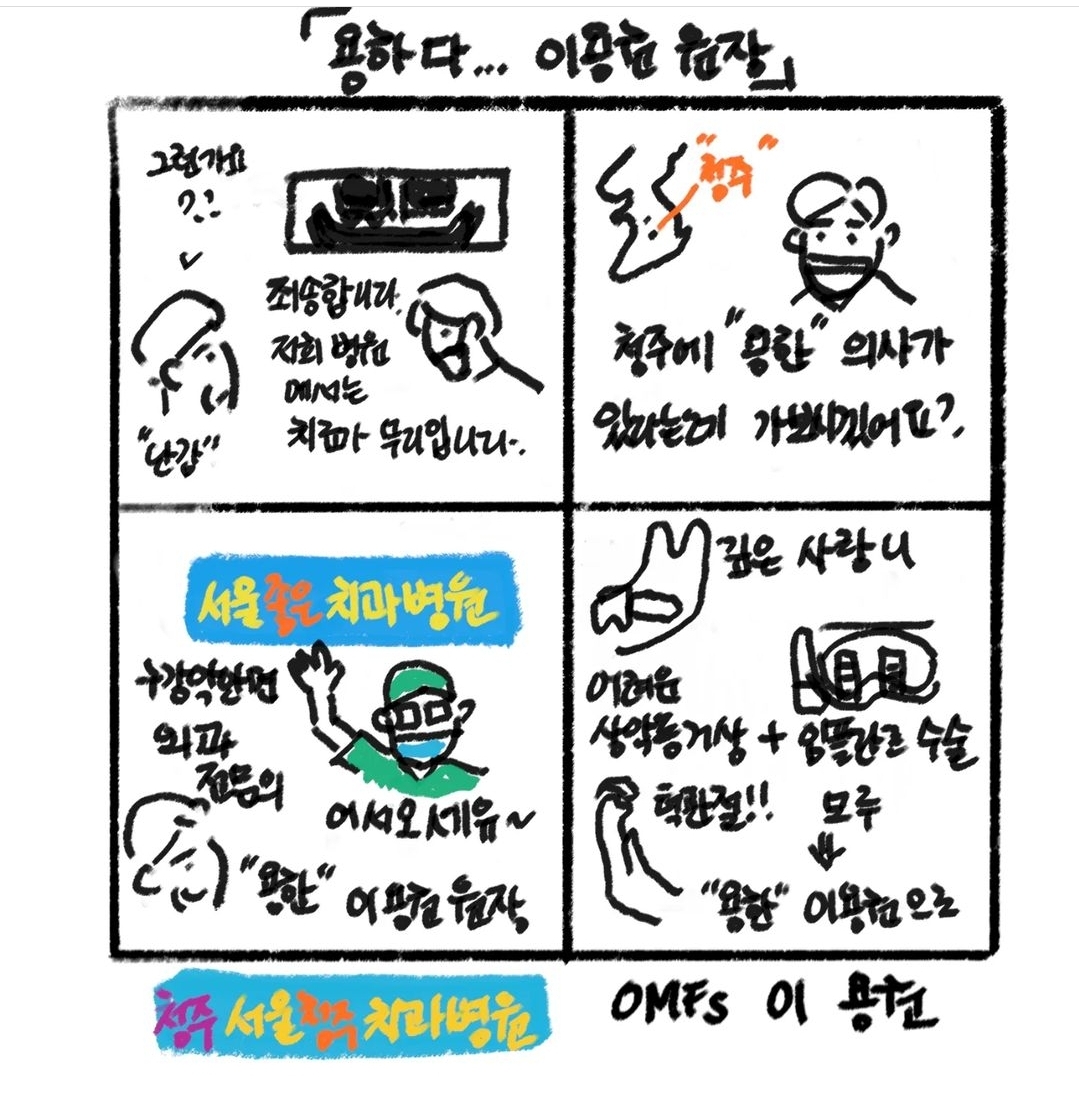 「용하다... 이용권 원장」
그런가요
??
죄송합니다.
저희 병원
에서는
치료가 무리입니다.
"난감"
"청주"
청주에 "용한" 의사가
있다는데 가보시겠어요?
서울좋은치과병원
구강악안면
외과
전문의
어서오세유~
"용한" 이용권 원장
깊은 사랑니
어려운
상악동거상 + 임플란트 수술
턱관절!! 모두
"용한" 이용권으로
청주 서울청주치과병원
OMFs 이용권